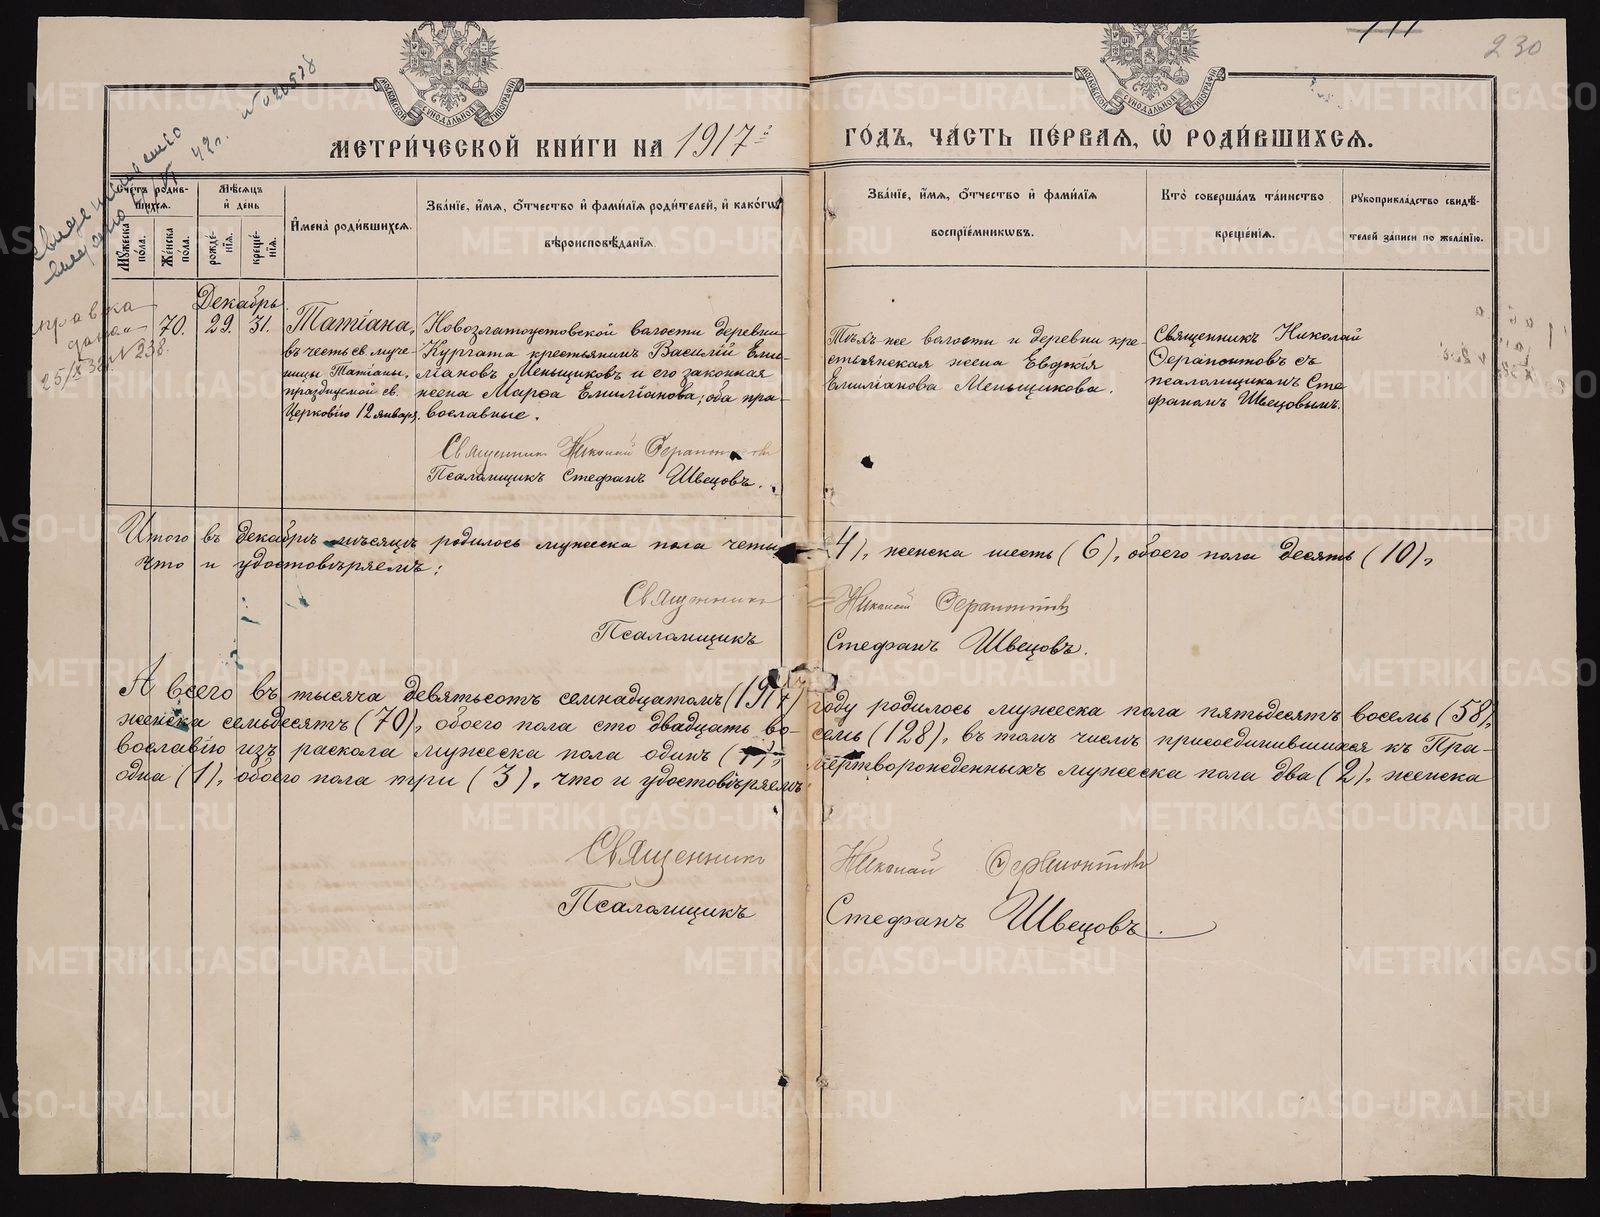 230
МОСКОВСКОЙ СУНОДАЛЬНОЙ ТИПОГРАФІИ
МОСКОВСКОЙ СУНОДАЛЬНОЙ ТИПОГРАФІИ
МЕТРИ́ЧЕСКОЙ КНИ́ГИ НА 1917й ГО́ДЪ, ЧА́СТЬ ПЕ́РВАЯ, Ѡ҆ РОДИ́ВШИХСЯ.
Сче́тъ роди́в-
шихся.
Мꙋ́жеска по́ла.
Же́нска по́ла.
Мѣ́сяцъ
и҆ день
рожде́-
нїя.
креще́-
нїя.
И҆мена̀ роди́вшихся.
Зва́нїе, и҆́мя, ѻ҆́тчество и҆ фами́лїя роди́телей, и҆ како́гѡ
вѣроисповѣ́данїя.
Зва́нїе, и҆́мя, ѻ҆́тчество и҆ фами́лїя
воспрїе́мникѡвъ.
Кто̀ соверша́лъ та́инство
креще́нїя.
Рꙋкоприкла́дство свидѣ́-
телей за́писи по жела́нїю.
справка
дана
25/X 38г. № 238.
Декабрь
70. 29. 31.
Татіана,
въ честь св. муче-
ницы Татіаны,
празднуемой св.
Церковію 12 января.
Новозлатоустовской волости деревни
Кургата крестьянинъ Василій Еми-
ліановъ Меньщиковъ и его законная
жена Марѳа Емиліанова; оба пра-
вославные.
Священникъ Николай Ѳерапонтовъ
Псаломщикъ Стефанъ Швецовъ.
Тоѣ-же волости и деревни кре-
стьянская жена Евдокія
Емиліанова Меньщикова.
Священникъ Николай
Ѳерапонтовъ съ
псаломщикомъ Сте
фаномъ Швецовымъ.
Итого въ декабрѣ мѣсяцѣ родилось мужеска пола четы (4), женска шесть (6), обоего пола десять (10),
что и удостовѣряемъ:
Священникъ Николай Ѳерапонтовъ
Псаломщикъ Стефанъ Швецовъ.
А всего въ тысяча девятьсотъ семнадцатомъ (1917) году родилось мужеска пола пятьдесятъ восемь (58),
женска семьдесятъ (70), обоего пола сто двадцать во-семь (128), въ томъ числѣ присоединившихся къ Пра-
вославію изъ раскола мужеска пола одинъ (1), мертворожденныхъ мужеска пола два (2), женска
одна (1), обоего пола три (3), что и удостовѣряемъ:
Священникъ Николай Ѳерапонтовъ
Псаломщикъ Стефанъ Швецовъ.
METRIKI.GASO-URAL.RU